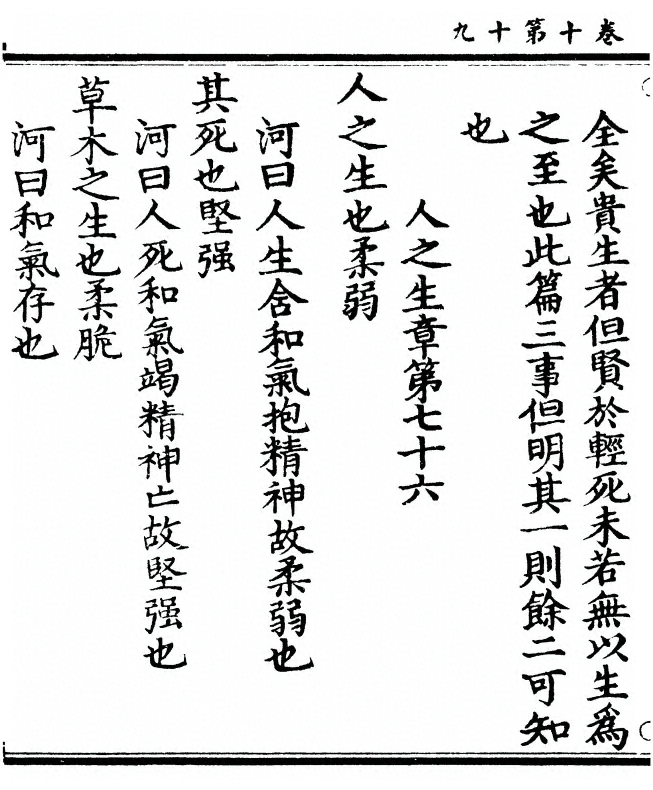 卷十第十九
全矣貴生者但賢於輕死未若無以生爲
之至也此篇三事但明其一則餘二可知
也
人之生章第七十六
人之生也柔弱
河曰人生含和氣抱精神故柔弱也
其死也堅强
河曰人死和氣竭精神亡故堅强也
草木之生也柔脆
河曰和氣存也